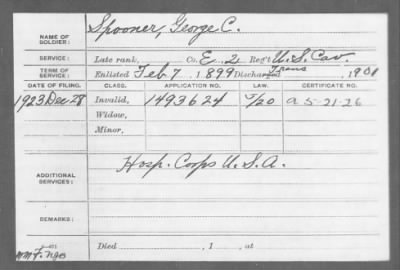 NAME OF SOLDIER: Spooner, George C.
SERVICE: Late rank, Co. E, 2 Reg't U.S. Cav.
TERM OF SERVICE: Enlisted Feb 7, 1899 Discharged Trans, 1901
DATE OF FILING. CLASS. APPLICATION NO. LAW. CERTIFICATE NO.
1923 Dec 28 Invalid, 1493624 5/20 a 5-21-26
Widow,
Minor,
ADDITIONAL SERVICES: Hosp. Corps U.S.A.
REMARKS:
Died , 1 , at